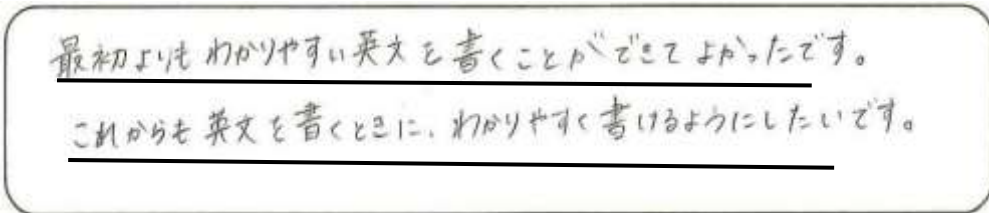 最初よりもわかりやすい英文を書くことができてよかったです。
これからも英文を書くときに、わかりやすく書けるようにしたいです。